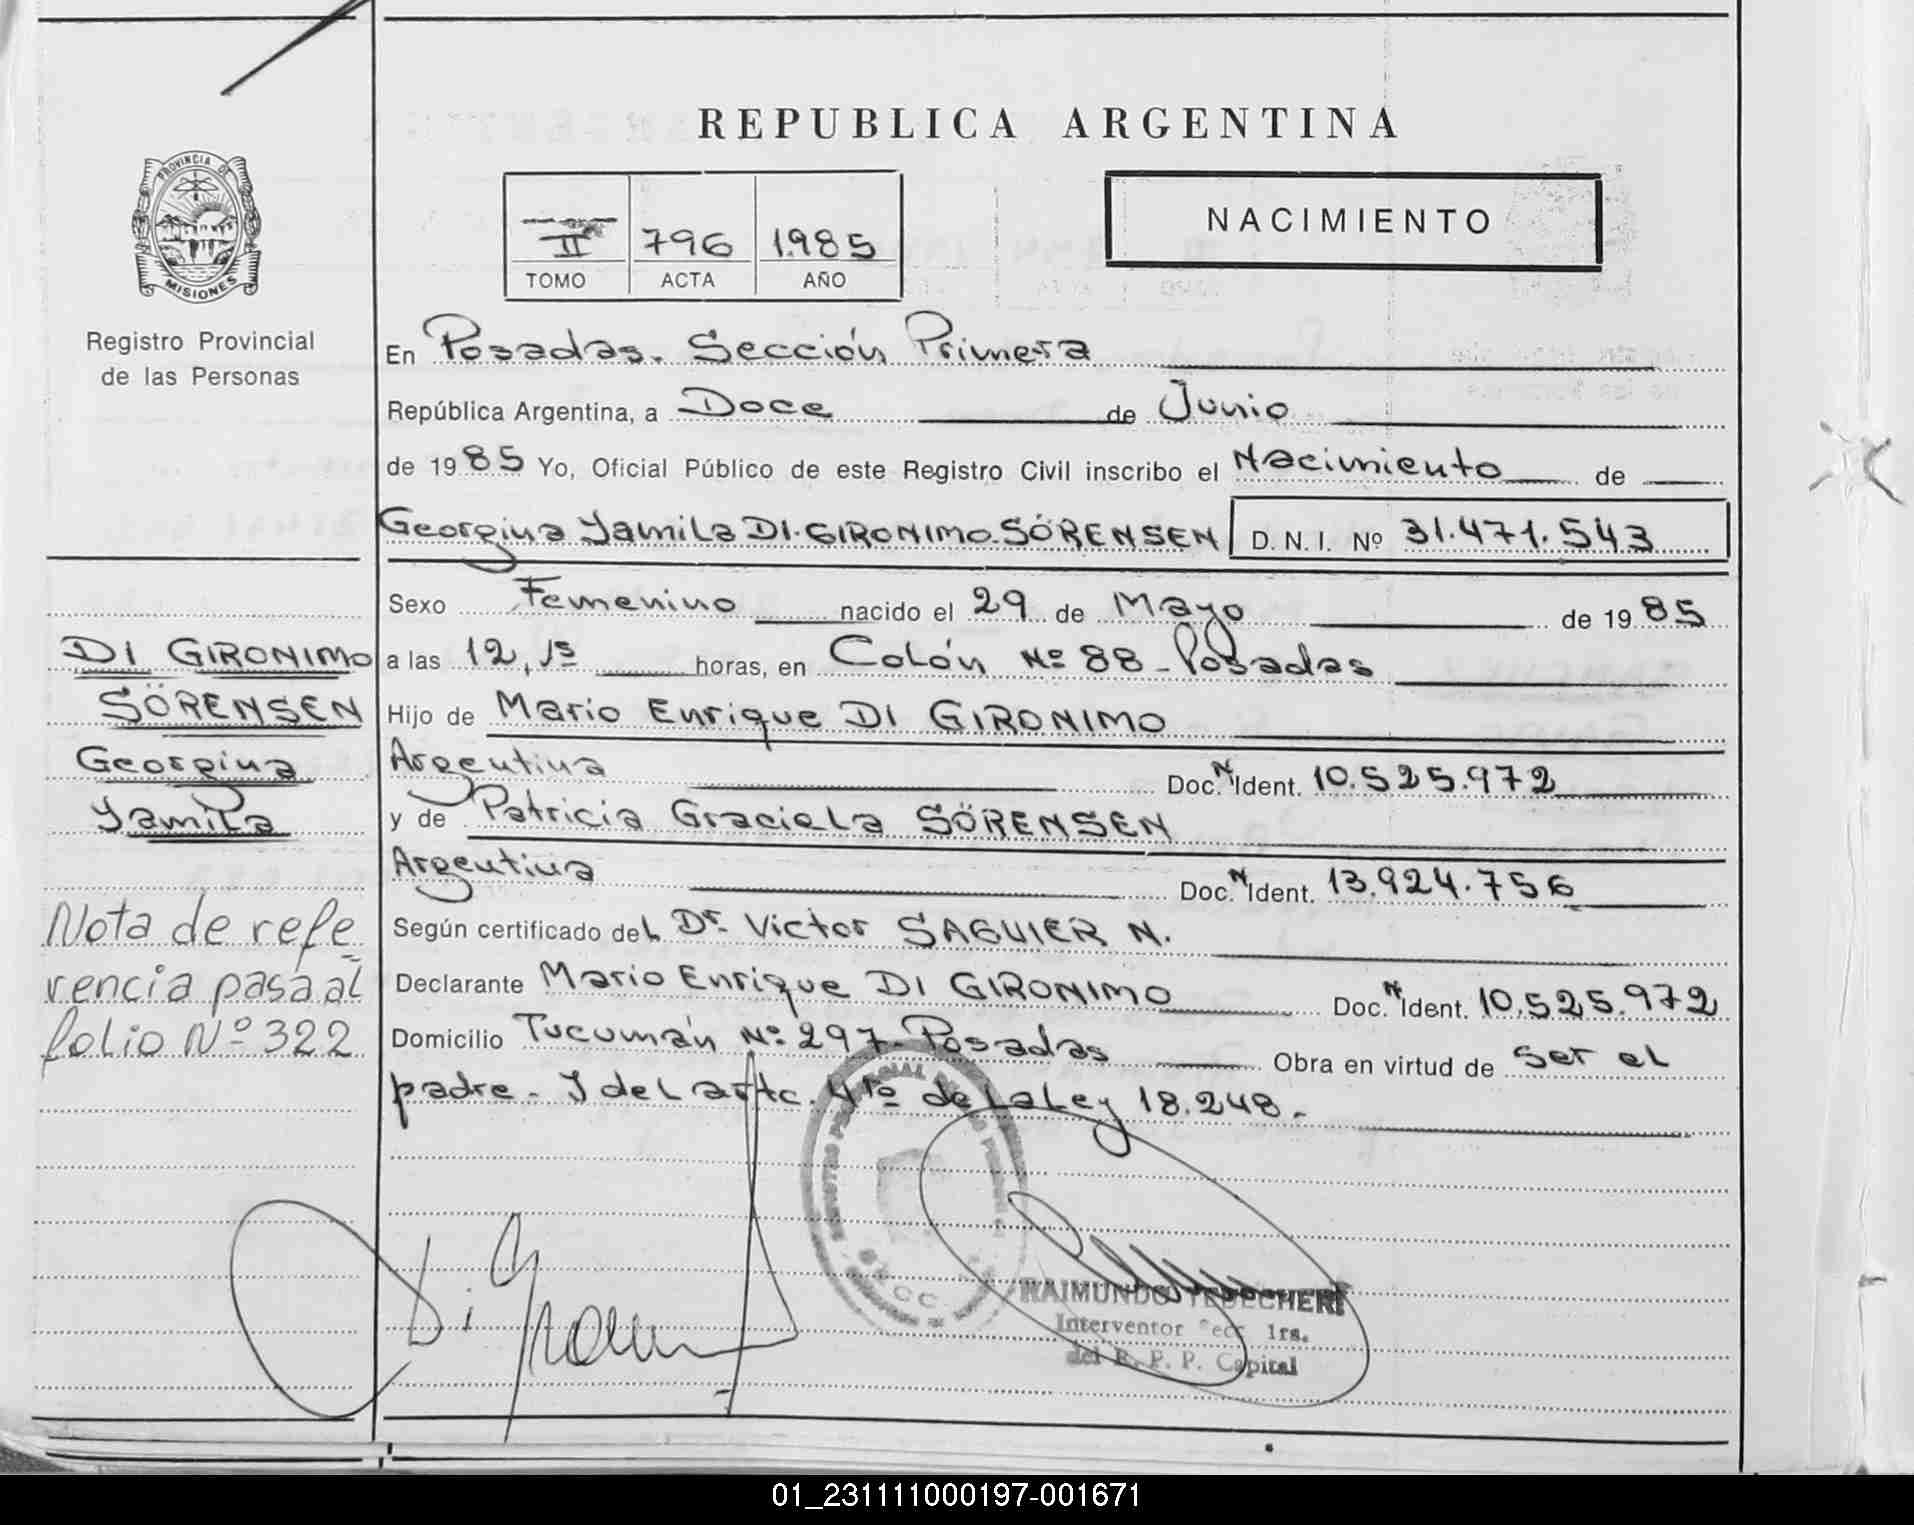 REPUBLICA ARGENTINA
PROVINCIA DE
MISIONES
Registro Provincial
de las Personas
II 796 1985
TOMO ACTA AÑO
NACIMIENTO
En Posadas. Sección Primera
República Argentina, a Doce de Junio
de 1985 Yo, Oficial Público de este Registro Civil inscribo el Nacimiento de
Georgina Yamila DI GIRONIMO SÖRENSEN D.N.I. Nº 31.471.543
Sexo Femenino nacido el 29 de Mayo de 1985
a las 12,15 horas, en Colón Nº 88 - Posadas
Hijo de Mario Enrique DI GIRONIMO
Argentina Doc. N Ident. 10.525.972
y de Patricia Graciela SÖRENSEN
Argentina Doc. N Ident. 13.924.756
Según certificado del Dr. Victor SAGUIER N.
Declarante Mario Enrique DI GIRONIMO Doc. N Ident. 10.525.972
Domicilio Tucumán Nº 297 - Posadas Obra en virtud de ser el
padre. Y del artc. 4to de La Ley 18.248.
DI GIRONIMO
SÖRENSEN
Georgina
Yamila
Nota de refe
rencia pasa al
folio Nº 322
RAIMUNDO
Interventor Secc 1ra.
del R. P. P. Capital
01_231111000197-001671